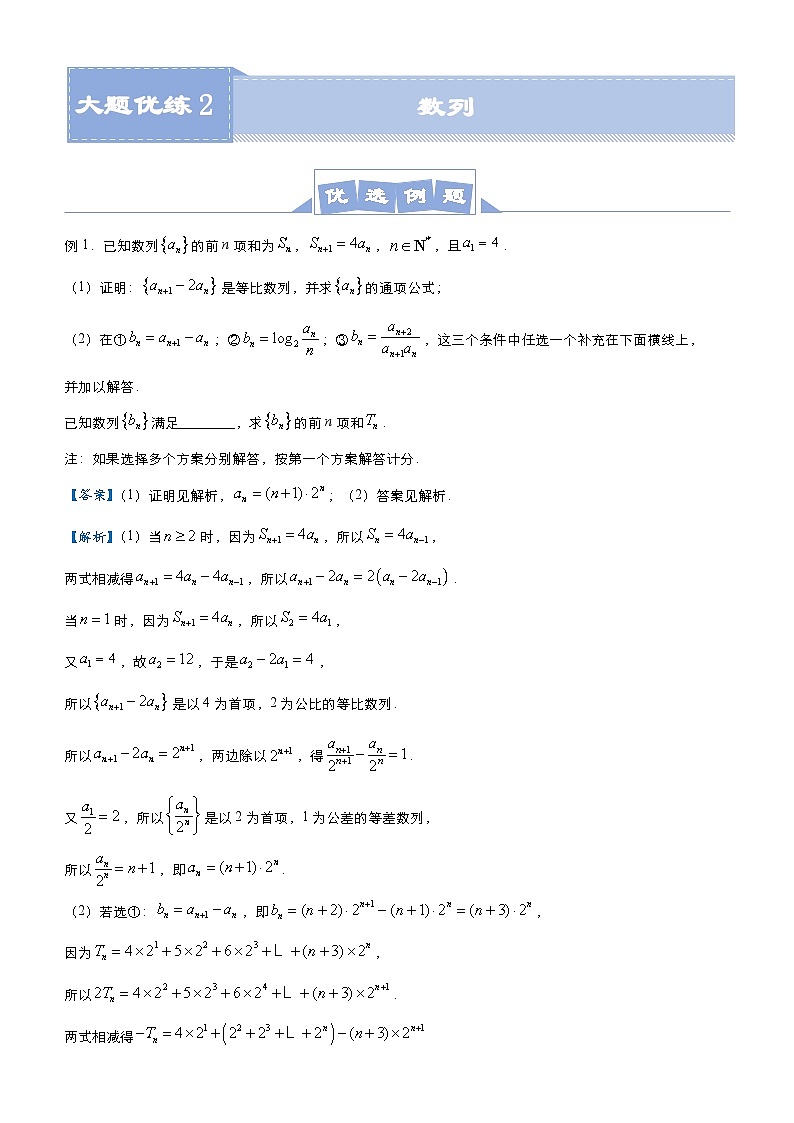 大题优练2
数列
优选例题
例1．已知数列{aₙ}的前n项和为Sₙ，Sₙ₊₁ = 4aₙ，n∈N*，且a₁ = 4．
（1）证明：{aₙ₊₁ − 2aₙ}是等比数列，并求{aₙ}的通项公式；
（2）在①bₙ = aₙ₊₁ − aₙ；②bₙ = log₂(aₙ/n)；③bₙ = aₙ₊₂/(aₙ₊₁aₙ)，这三个条件中任选一个补充在下面横线上，
并加以解答．
已知数列{bₙ}满足________，求{bₙ}的前n项和Tₙ．
注：如果选择多个方案分别解答，按第一个方案解答计分．
【答案】（1）证明见解析，aₙ = (n+1)·2ⁿ；（2）答案见解析．
【解析】（1）当n ≥ 2时，因为Sₙ₊₁ = 4aₙ，所以Sₙ = 4aₙ₋₁，
两式相减得aₙ₊₁ = 4aₙ − 4aₙ₋₁，所以aₙ₊₁ − 2aₙ = 2(aₙ − 2aₙ₋₁)．
当n = 1时，因为Sₙ₊₁ = 4aₙ，所以S₂ = 4a₁，
又a₁ = 4，故a₂ = 12，于是a₂ − 2a₁ = 4，
所以{aₙ₊₁ − 2aₙ}是以4为首项，2为公比的等比数列．
所以aₙ₊₁ − 2aₙ = 2ⁿ⁺¹，两边除以2ⁿ⁺¹，得aₙ₊₁/2ⁿ⁺¹ − aₙ/2ⁿ = 1．
又a₁/2 = 2，所以{aₙ/2ⁿ}是以2为首项，1为公差的等差数列，
所以aₙ/2ⁿ = n+1，即aₙ = (n+1)·2ⁿ．
（2）若选①：bₙ = aₙ₊₁ − aₙ，即bₙ = (n+2)·2ⁿ⁺¹ − (n+1)·2ⁿ = (n+3)·2ⁿ，
因为Tₙ = 4×2¹ + 5×2² + 6×2³ + L + (n+3)×2ⁿ，
所以2Tₙ = 4×2² + 5×2³ + 6×2⁴ + L + (n+3)×2ⁿ⁺¹．
两式相减得−Tₙ = 4×2¹ + (2² + 2³ + L + 2ⁿ) − (n+3)×2ⁿ⁺¹